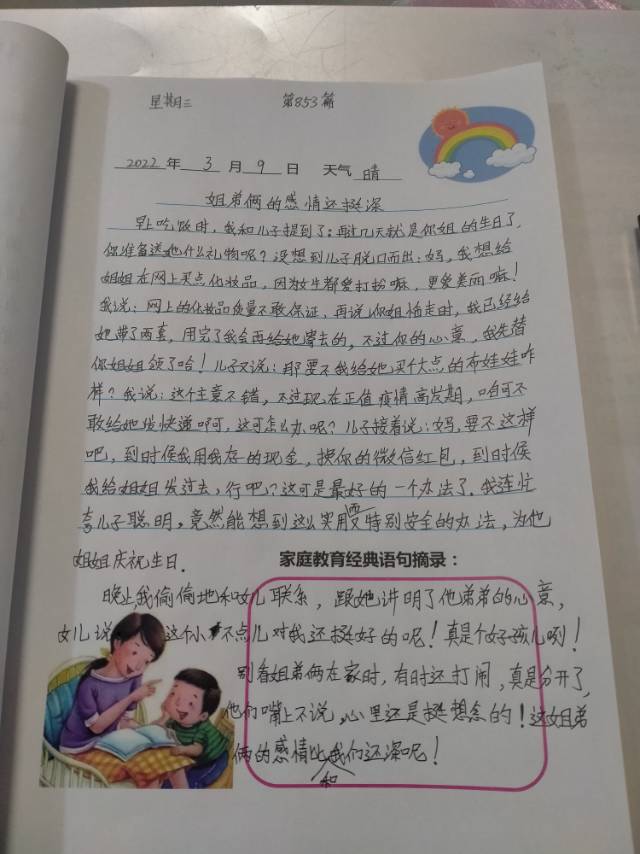 星期三 第853篇
2022年 3月 9日 天气 晴
姐弟俩的感情还挺深
早上吃饭时，我和儿子提到了：再过几天就是你姐的生日了，
你准备送她什么礼物呢？没想到儿子脱口而出：妈，我想给
姐姐在网上买点化妆品，因为女生都爱打扮嘛，更爱美丽嘛！
我说：网上的化妆品质量不敢保证，再说你姐姐走时，我已经给
她带了两套，用完了我会再给她寄去的，不过你的心意，我先替
你姐姐领了哈！儿子又说：那要不我给她买个大点的布娃娃咋
样？我说：这个主意不错，不过现在正值疫情高发期，咱可不
敢给她发快递啊，这可怎么办呢？儿子接着说：妈，要不这样
吧，到时候我用我存的现金，换你的微信红包，到时候
我给姐姐发过去，行吧？这可是最好的一个办法了。我连忙
夸儿子聪明，竟然能想到这么实用又特别安全的办法，为他
姐姐庆祝生日。
家庭教育经典语句摘录：
晚上，我偷偷地和女儿联系，跟她讲明了他弟弟的心意，
女儿说 这个小不点儿对我还挺好的呢！真是个好孩儿咧！
别看姐弟俩在家时，有时还打闹，真是分开了，
他们嘴上不说，心里还是挺想念的！这姐弟
俩的感情比和我们还深呢！